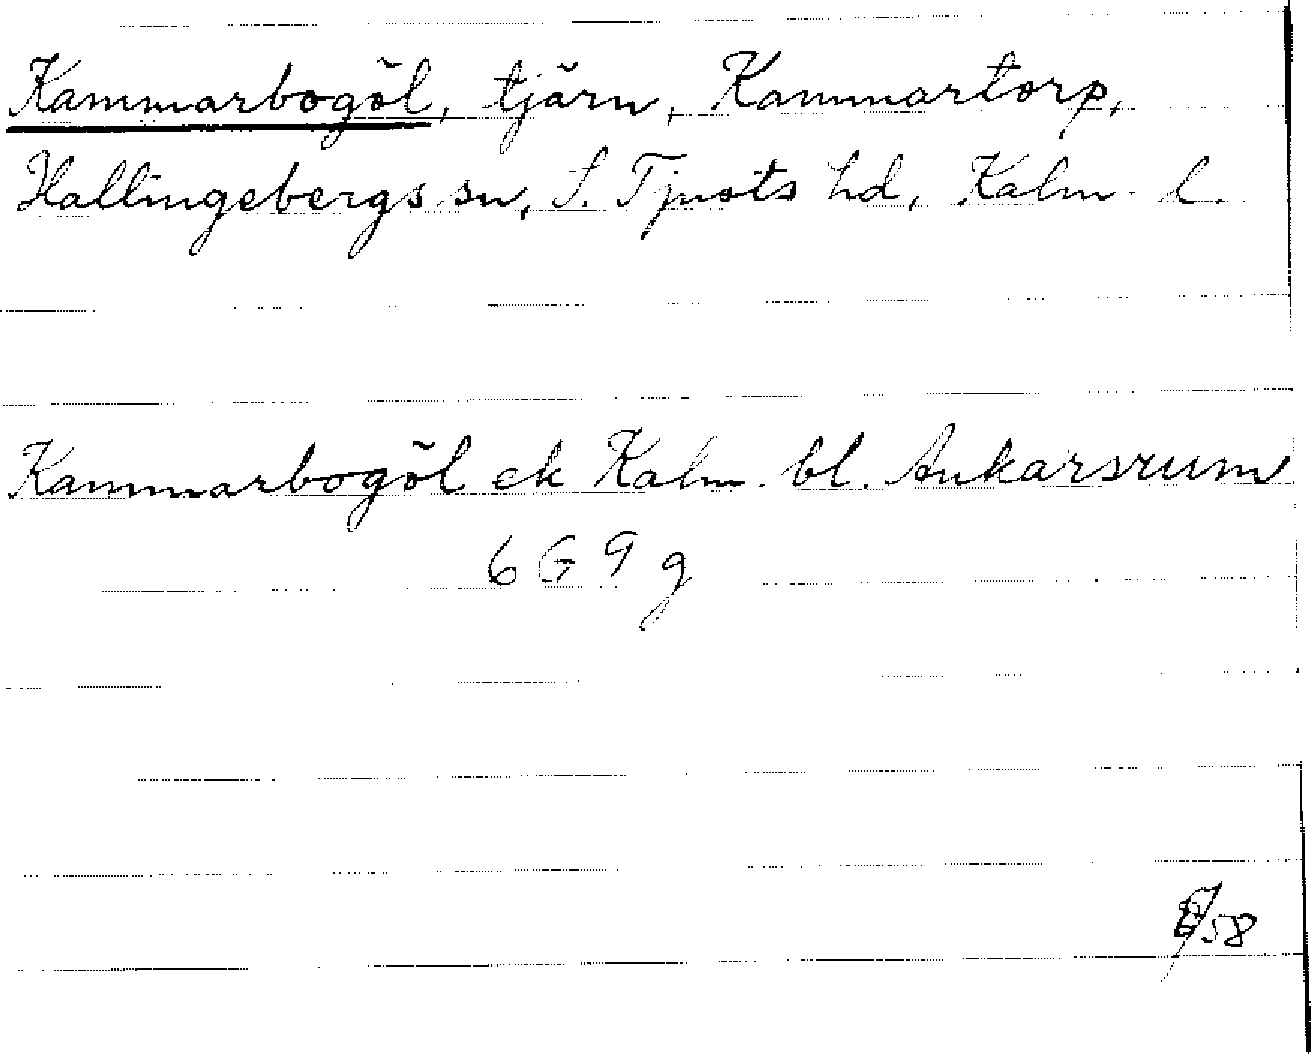 Kammarbogöl, tjärn, Kammartorp,
Hallingebergs sn, S. Tjusts hd, Kalm. l.
Kammarbogöl ek Kalm. bl. Ankarsrum
6 G 9 g
58